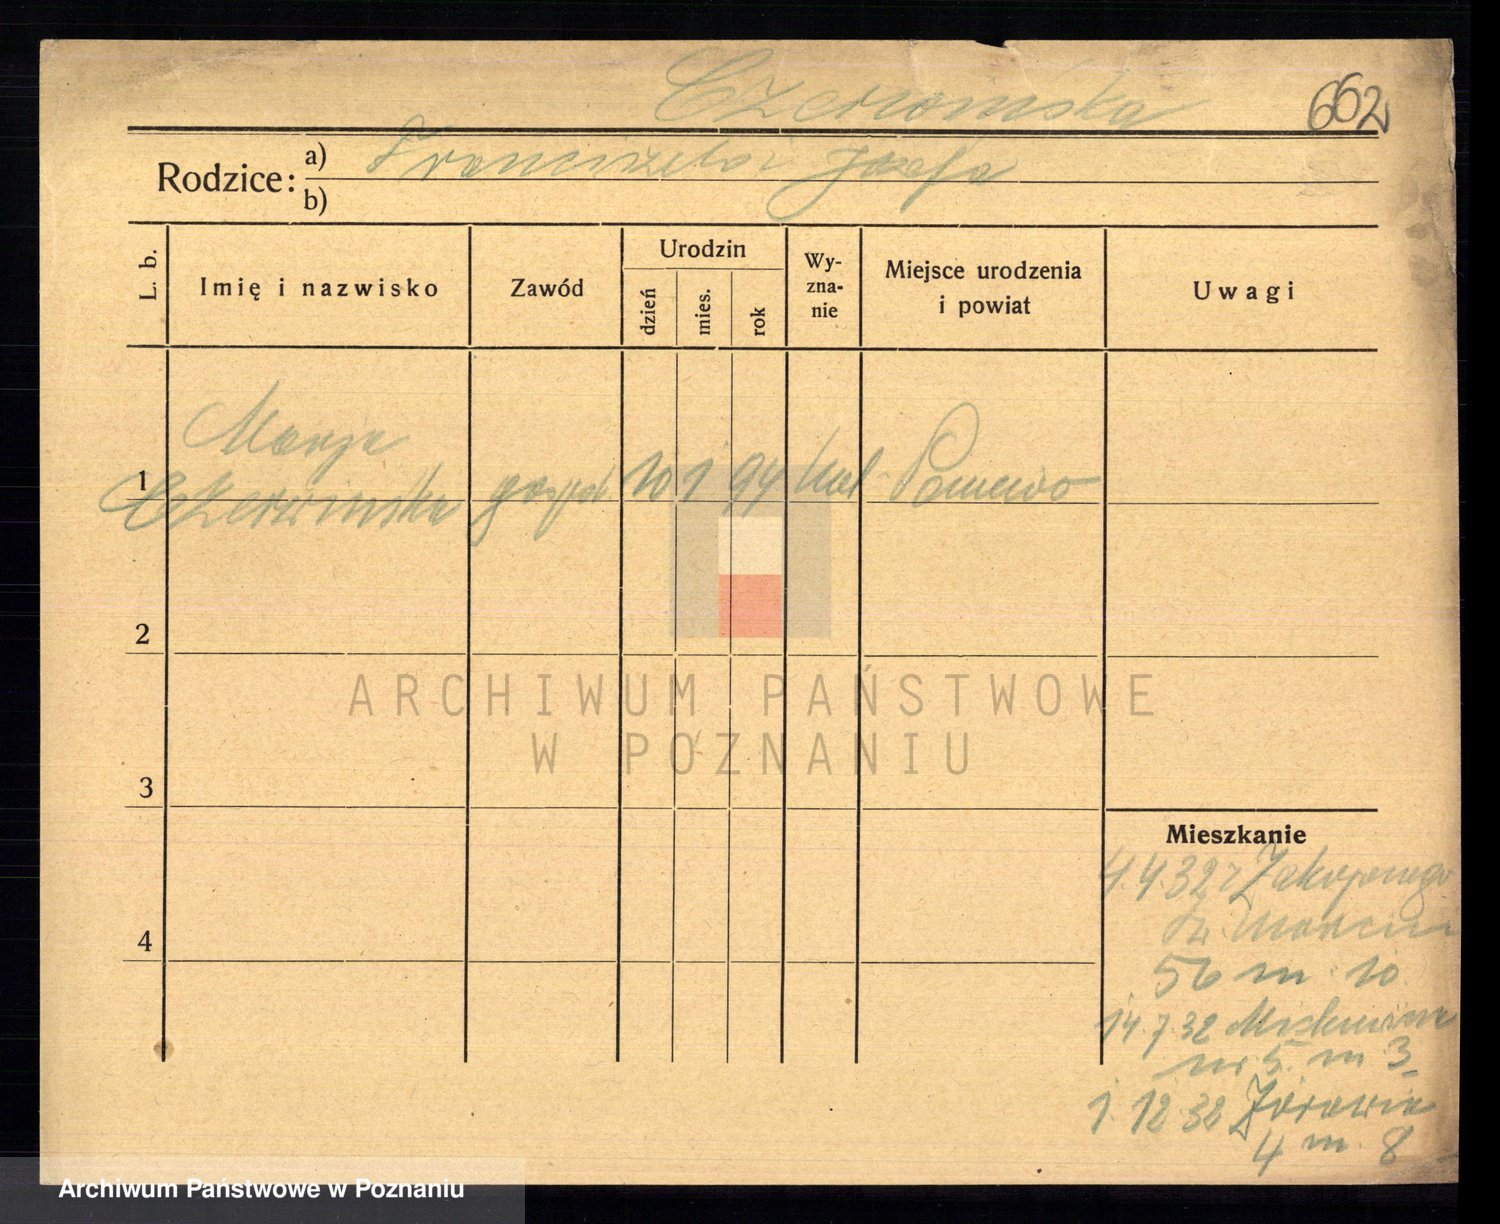 Czerwińska
662
Rodzice:
a) Franciszek i Józefa
b)
L. b.
Imię i nazwisko
Zawód
Urodzin
dzień
mies.
rok
Wy-
zna-
nie
Miejsce urodzenia
i powiat
Uwagi
Marja
1 Czerwińska gospod 10 1 94 kat
2
3
4
ARCHIWUM PAŃSTWOWE
W POZNANIU
Mieszkanie
4.4.32 z Zakopanego
Św. Marcin
56 m. 10
14.7.32
nr 5. m 3
1.12.32 Żórawia
4 m. 8
Archiwum Państwowe w Poznaniu